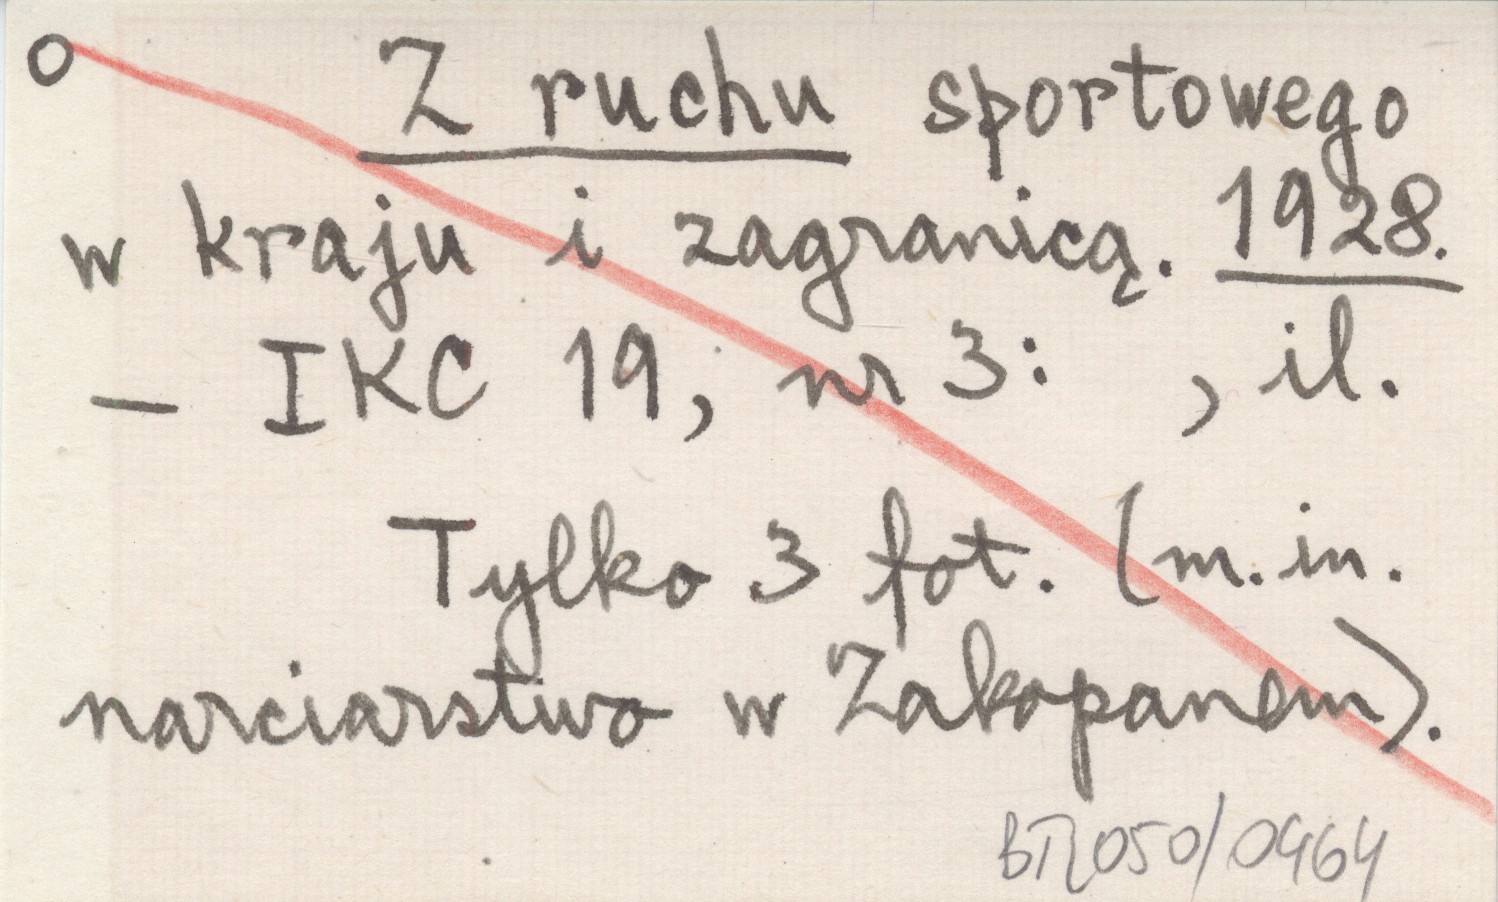 o Z ruchu sportowego
w kraju i zagranicą. 1928.
– IKC 19, nr 3: , il.
Tylko 3 fot. (m.in.
narciarstwo w Zakopanem).
050/0464